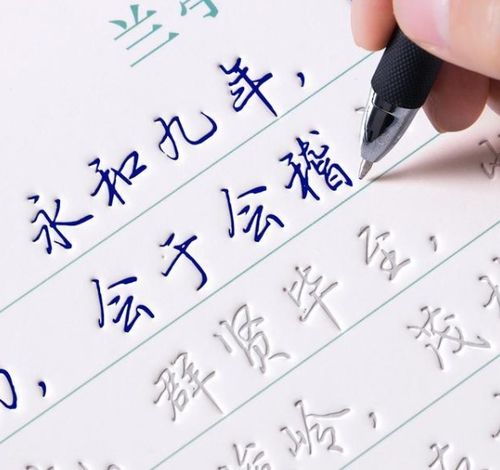 兰
永和九年,
,会于会稽
群贤毕至,
岭,茂